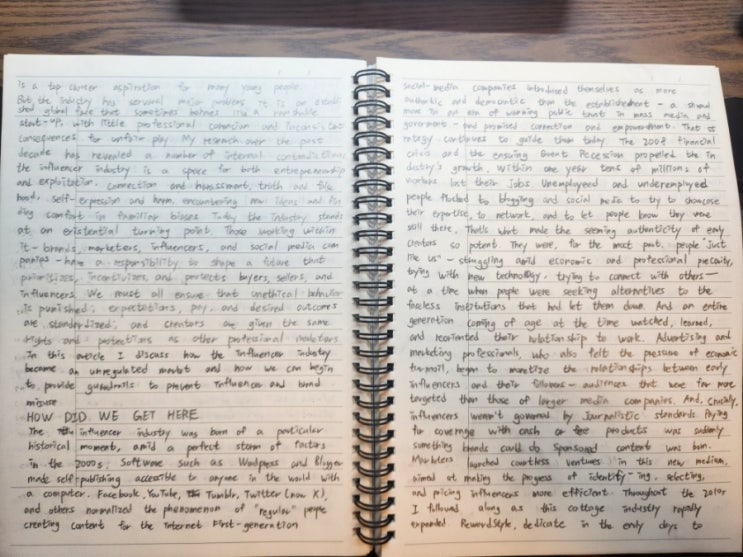 is a top career aspiration for many young people.
But the industry has serveral major problems it is an establi
shed global force that sometimes behaves like a
start-up, with little professional cohesion and inconsistent
consequences for unfair play. My research over the past
decade has revealed a number of internal contradictions
the influencer industry is a space for both entrepreneurship
and exploitation, connection and harassment, truth and false
hood, self-expression and harm, encountering new ideas and fin
ding comfort in familiar biases Today the industry stands
at an existential turning point. Those working within
it - brands, marketers, influencers, and social media com
panies - have a responsibility to shape a future that
prioritizes, incentivizes, and protects buyers, sellers, and
influencers We must all ensure that unethical behavior
is punished; expectations, pay, and desired outcomes
are standardized; and creators are given the same
rights and protections as other professional marketers
in this article I discuss how the influencer industry
became an unregulated market and how we can begin
to provide guardrails to prevent influencer and brand
misuse
HOW DID WE GET HERE
The influencer industry was born of a particular
historical moment, amid a perfect storm of factors
in the 2000s. Software such as Wordpress and Blogger
made self-publishing accessible to anyone in the world with
a computer. Facebook, YouTube, Tumblr, Twitter (now X),
and others normalized the phenomenon of "regular" people
creating content for the Internet First-generation
social-media companies introduced themselves as more
authentic and democratic than the establishment - a shrewd
move in an era of waning public trust in mass media, and
government - and promised connection and empowerment. That st
rategy continues to guide them today The 2008 financial
crisis and the ensuing Great Recession propelled the in
dustry's growth, Within one year tens of millions of
workers lost their jobs Unemployed and underemployed
people flocked to blogging and social media to try to showcase
their expertise, to network, and to let people know they were
still there, That's what made the seeming authenticity of early
creators so potent They were, for the most part, people "just
like us" - struggling amid economic and professional precarity,
trying with new technology, trying to connect with others -
at a time when people were seeking alternatives to the
faceless institutions that had let them down. And an entire
generation coming of age at the time watched, learned,
and reoriented their relationship to work. Advertising and
marketing professionals, who also felt the pressure of economic
turmoil, began to monetize the relationships between early
influencers and their followers - audiences that were far more
targeted than those of larger media companies. And, crucially,
influencers weren't governed by Journalistic standards Paying
for coverage with cash or free products was suddenly
something brands could do Sponsored content was born.
Marketers launched countless ventures in this new medium,
aimed at making the progress of identifying, selecting,
and pricing influencers more efficient. Throughout the 2010s
I followed along as this cottage industry rapidly
expanded. RewardStyle, dedicate in the early days to